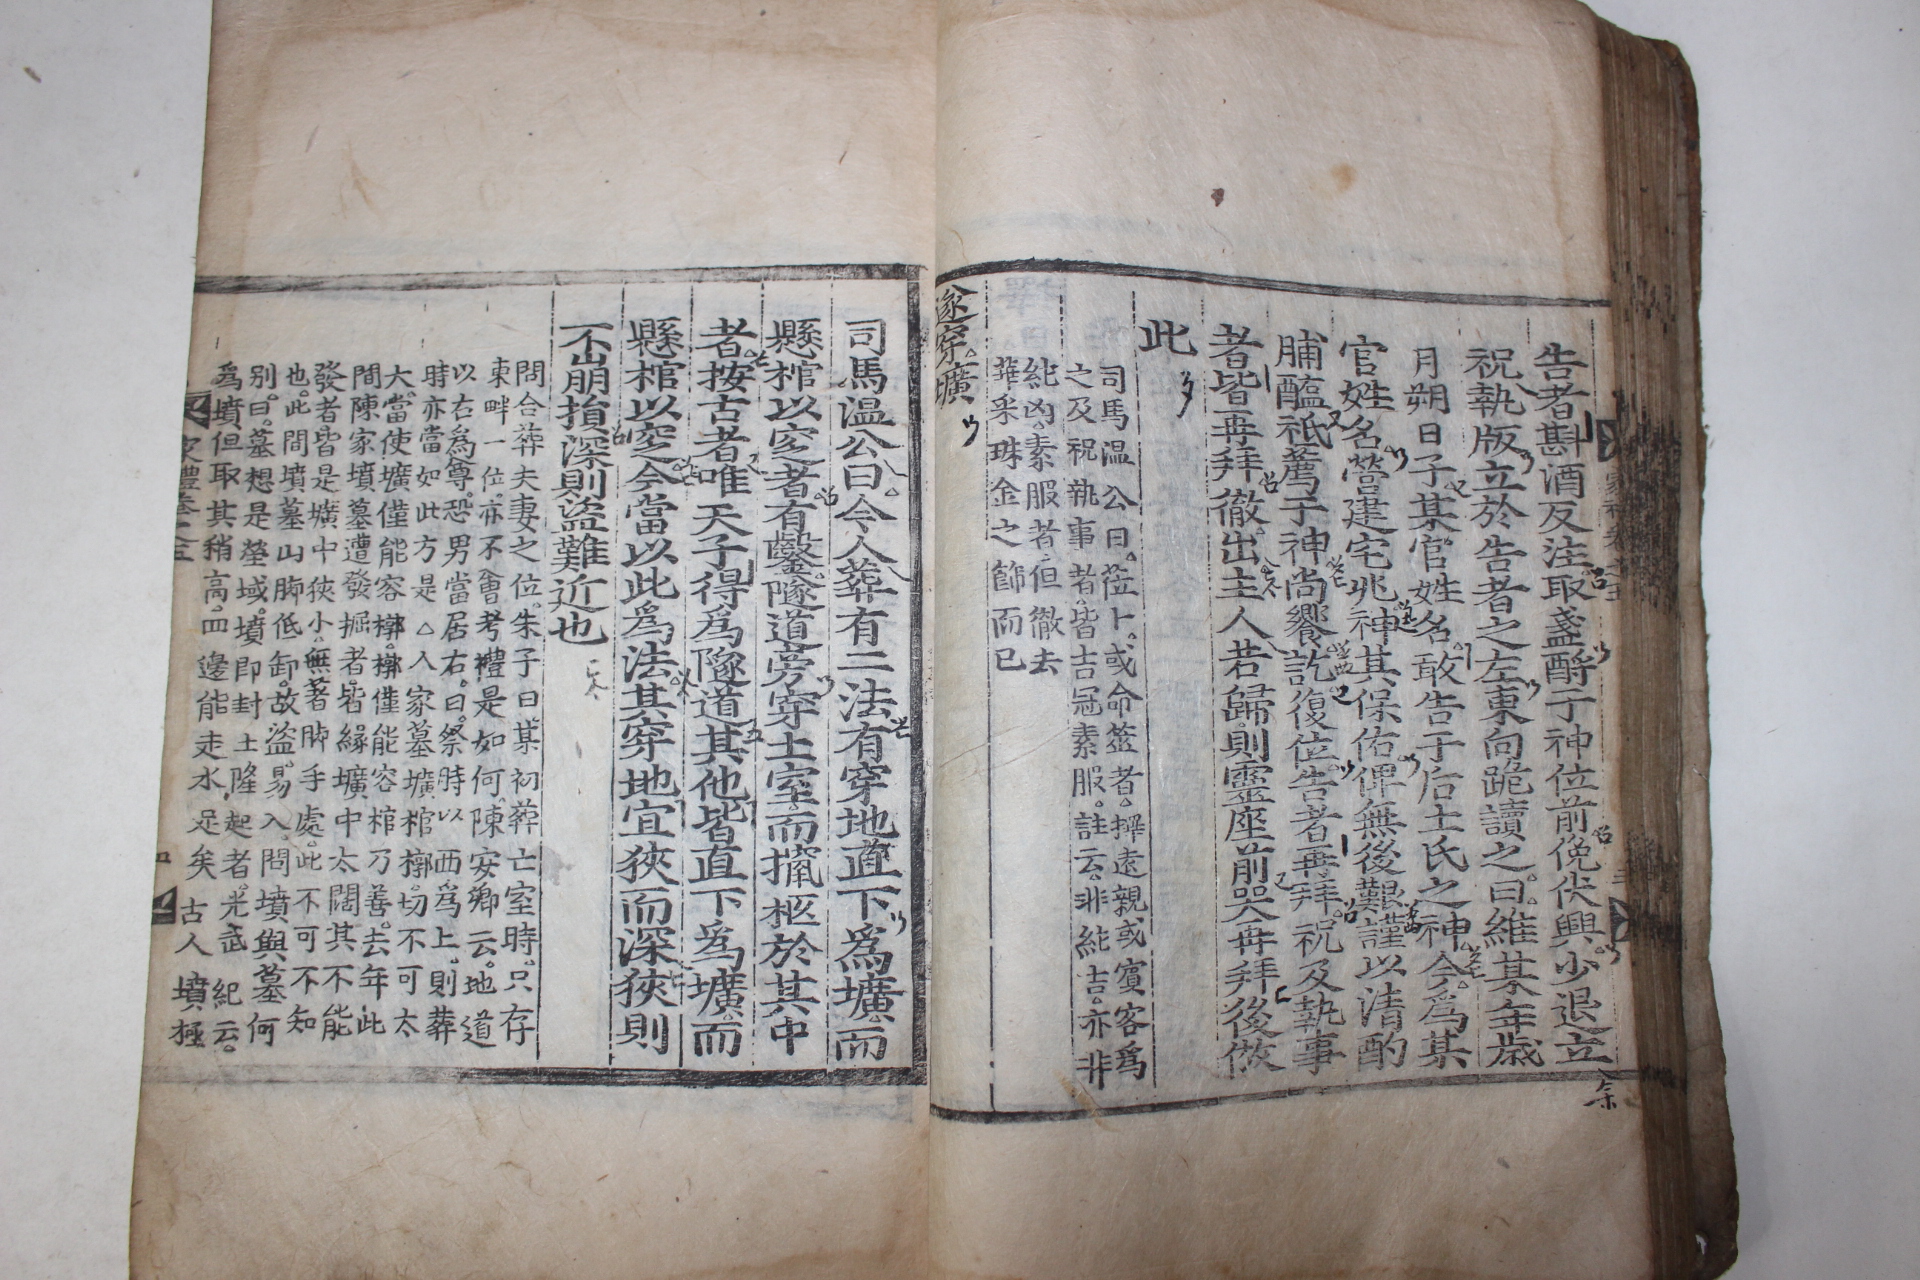 告者斟酒反注取盞酹于神位前俛伏興少退立
祝執版立於告者之左東向跪讀之曰維某年歲
月朔日子某官姓名敢告于后土氏之神今爲某
官姓名營建宅兆神其保佑俾無後艱謹以清酌
脯醢祗薦于神尚饗訖復位告者再拜祝及執事
者皆再拜徹出主人若歸則靈座前哭再拜後倣
此
司馬温公曰莅卜或命筮者擇遠親或賓客爲
之及祝執事者皆吉冠素服註云非純吉亦非
純凶素服者但徹去
華采珠金之飾而已
遂穿壙
司馬温公曰今人葬有二法有穿地直下爲壙而
懸棺以窆者有鑿隧道旁穿土室而攛柩於其中
者按古者唯天子得爲隧道其他皆直下爲壙而
懸棺以窆今當以此爲法其穿地宜狹而深狹則
不崩損深則盜難近也
問合葬夫妻之位朱子曰某初葬亡室時只存
東畔一位亦不曾考禮是如何陳安卿云地道
以右爲尊恐男當居右曰祭時以西爲上則葬
時亦當如此方是△人家墓壙棺槨切不可太
大當使壙僅能容槨槨僅能容棺乃善去年此
間陳家墳墓遭發掘者皆緣壙中太闊其不能
發者皆是壙中狹小無著脚手處此不可不知
也此間墳墓山脚低卸故盜易入問墳與墓何
別曰墓想是塋域墳即封土隆起者光武紀云
爲墳但取其稍高四邊能走水足矣古人墳極
家禮卷之五